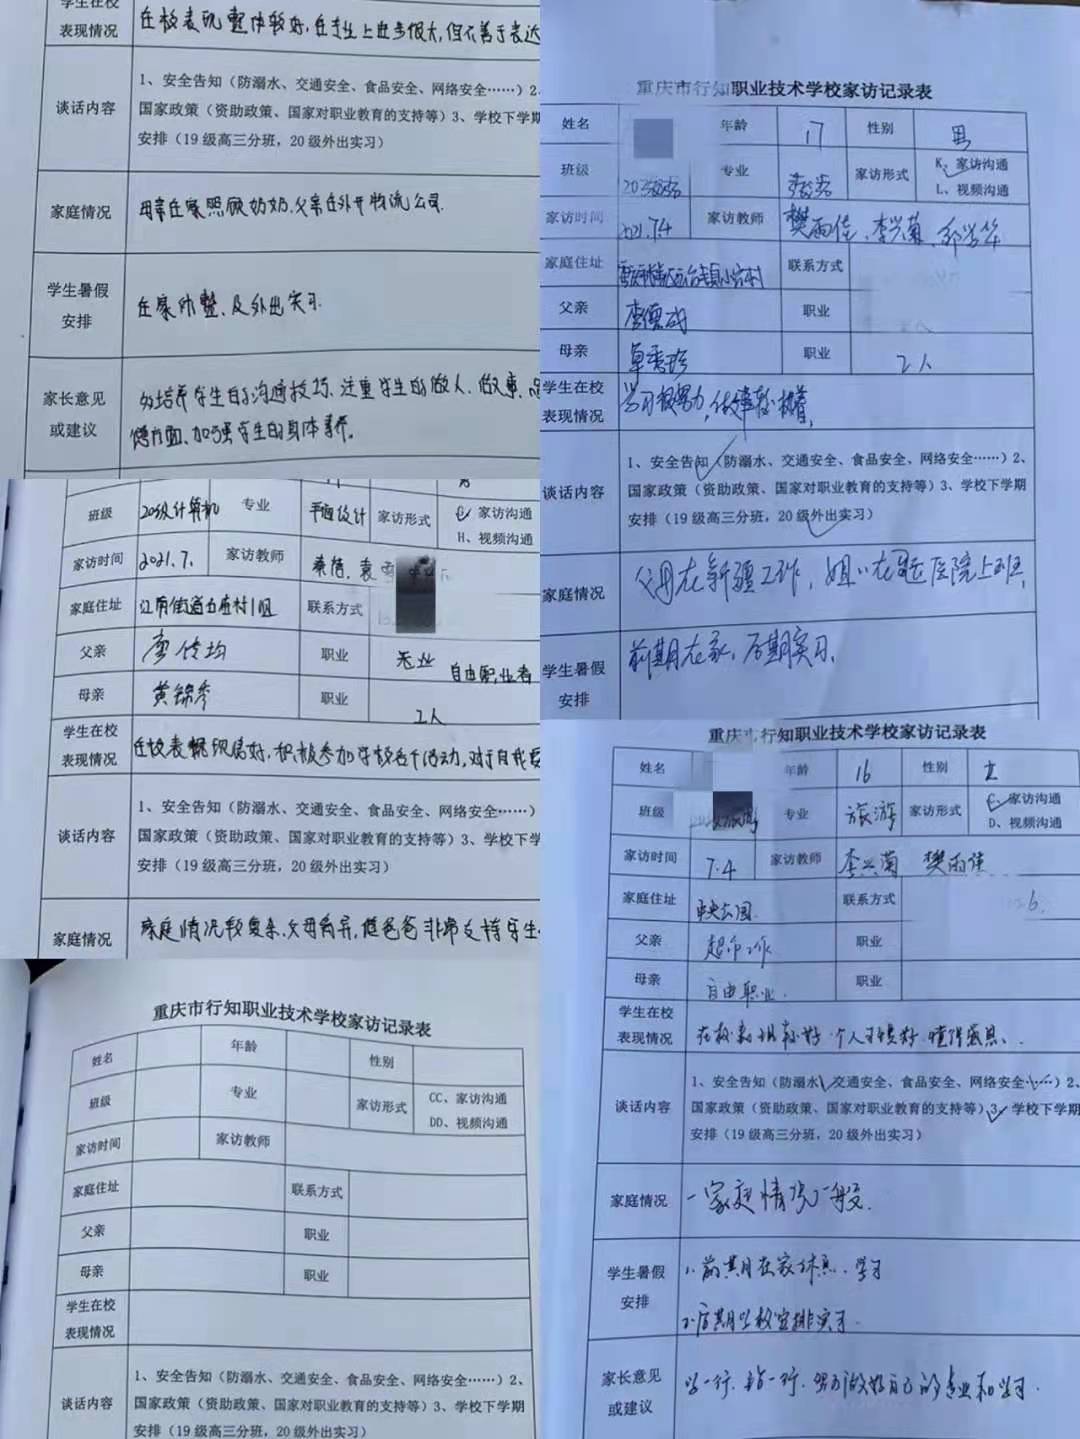 学生在校
表现情况
在校表现整体较好,在专业上进步很大,但不善于表达
谈话内容
1、安全告知（防溺水、交通安全、食品安全、网络安全……）2、
国家政策（资助政策、国家对职业教育的支持等）3、学校下学期
安排（19级高三分班，20级外出实习）
家庭情况
母亲在家照顾奶奶,父亲在外开物流公司.
学生暑假
安排
在家 及外出实习.
家长意见
或建议
多培养学生的沟通技巧、注重学生的做人、做事、
德方面、加强学生的身体素养。
班级
20级计算机
专业
平面设计
家访形式
家访沟通
H、视频沟通
家访时间
2021.7.
家访教师
家庭住址
联系方式
父亲
廖传均
职业
无业
自由职业者
母亲
黄锦秀
职业
工人
学生在校
表现情况
在校表现 良好,积极参加学校各个活动,对于自我
谈话内容
1、安全告知（防溺水、交通安全、食品安全、网络安全……）
国家政策（资助政策、国家对职业教育的支持等）3、学校下学
安排（19级高三分班，20级外出实习）
家庭情况
家庭情况较复杂,父母离异,继爸爸非常支持学生
重庆市行知职业技术学校家访记录表
姓名
年龄
性别
班级
专业
家访形式
CC、家访沟通
DD、视频沟通
家访时间
家访教师
家庭住址
联系方式
父亲
职业
母亲
职业
学生在校
表现情况
谈话内容
1、安全告知（防溺水、交通安全、食品安全、网络安全……）2、
国家政策（资助政策、国家对职业教育的支持等）3、学校下学期
安排（19级高三分班，20级外出实习）
重庆市行知职业技术学校家访记录表
姓名
年龄
17
性别
男
班级
专业
家访形式
K、家访沟通
L、视频沟通
家访时间
2021.7.4
家访教师
樊雨佳、李兴菊、邱学华
家庭住址
联系方式
父亲
李儒成
职业
母亲
卓秀珍
职业
工人
学生在校
表现情况
学习很努力,做事较执着,
谈话内容
1、安全告知（防溺水、交通安全、食品安全、网络安全……）2、
国家政策（资助政策、国家对职业教育的支持等）3、学校下学期
安排（19级高三分班，20级外出实习）
家庭情况
父母在新疆工作，姐姐在 医院上班,
学生暑假
安排
前期在家、后期实习、
重庆市行知职业技术学校家访记录表
姓名
年龄
16
性别
女
班级
专业
旅游
家访形式
家访沟通
D、视频沟通
家访时间
7.4
家访教师
李兴菊 樊雨佳
家庭住址
中央公园
联系方式
父亲
超市工作
职业
母亲
自由职业.
职业
学生在校
表现情况
在校表现较好 个人习惯好 懂得感恩、.
谈话内容
1、安全告知（防溺水、交通安全、食品安全、网络安全……）2、
国家政策（资助政策、国家对职业教育的支持等）3、学校下学期
安排（19级高三分班，20级外出实习）
家庭情况
家庭情况一般.
学生暑假
安排
1.前期在家休息、学习
2.后期学校安排实习.
家长意见
或建议
学一行.专一行.努力做好自己的专业和学习.